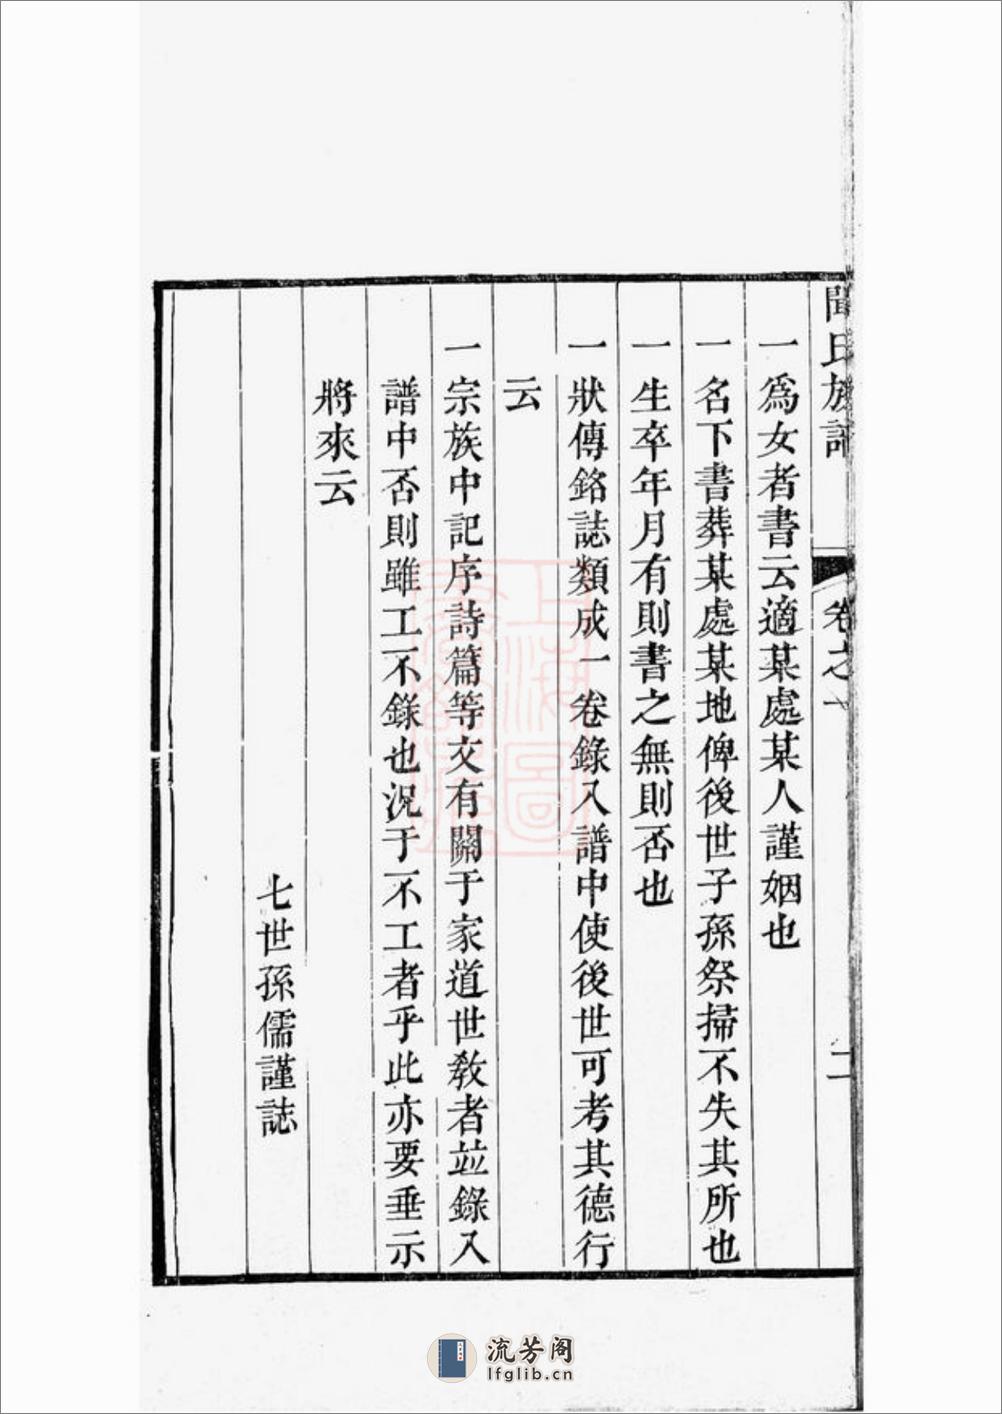 聞氏族譜
卷之一
二
一爲女者書云適某處某人謹姻也
一名下書葬某處某地俾後世子孫祭掃不失其所也
一生卒年月有則書之無則否也
一狀傳銘誌類成一卷錄入譜中使後世可考其德行
云
一宗族中記序詩篇等文有關于家道世敎者並錄入
譜中否則雖工不錄也況于不工者乎此亦要垂示
將來云
七世孫儒謹誌
上海圖
流芳阁
lfglib.cn